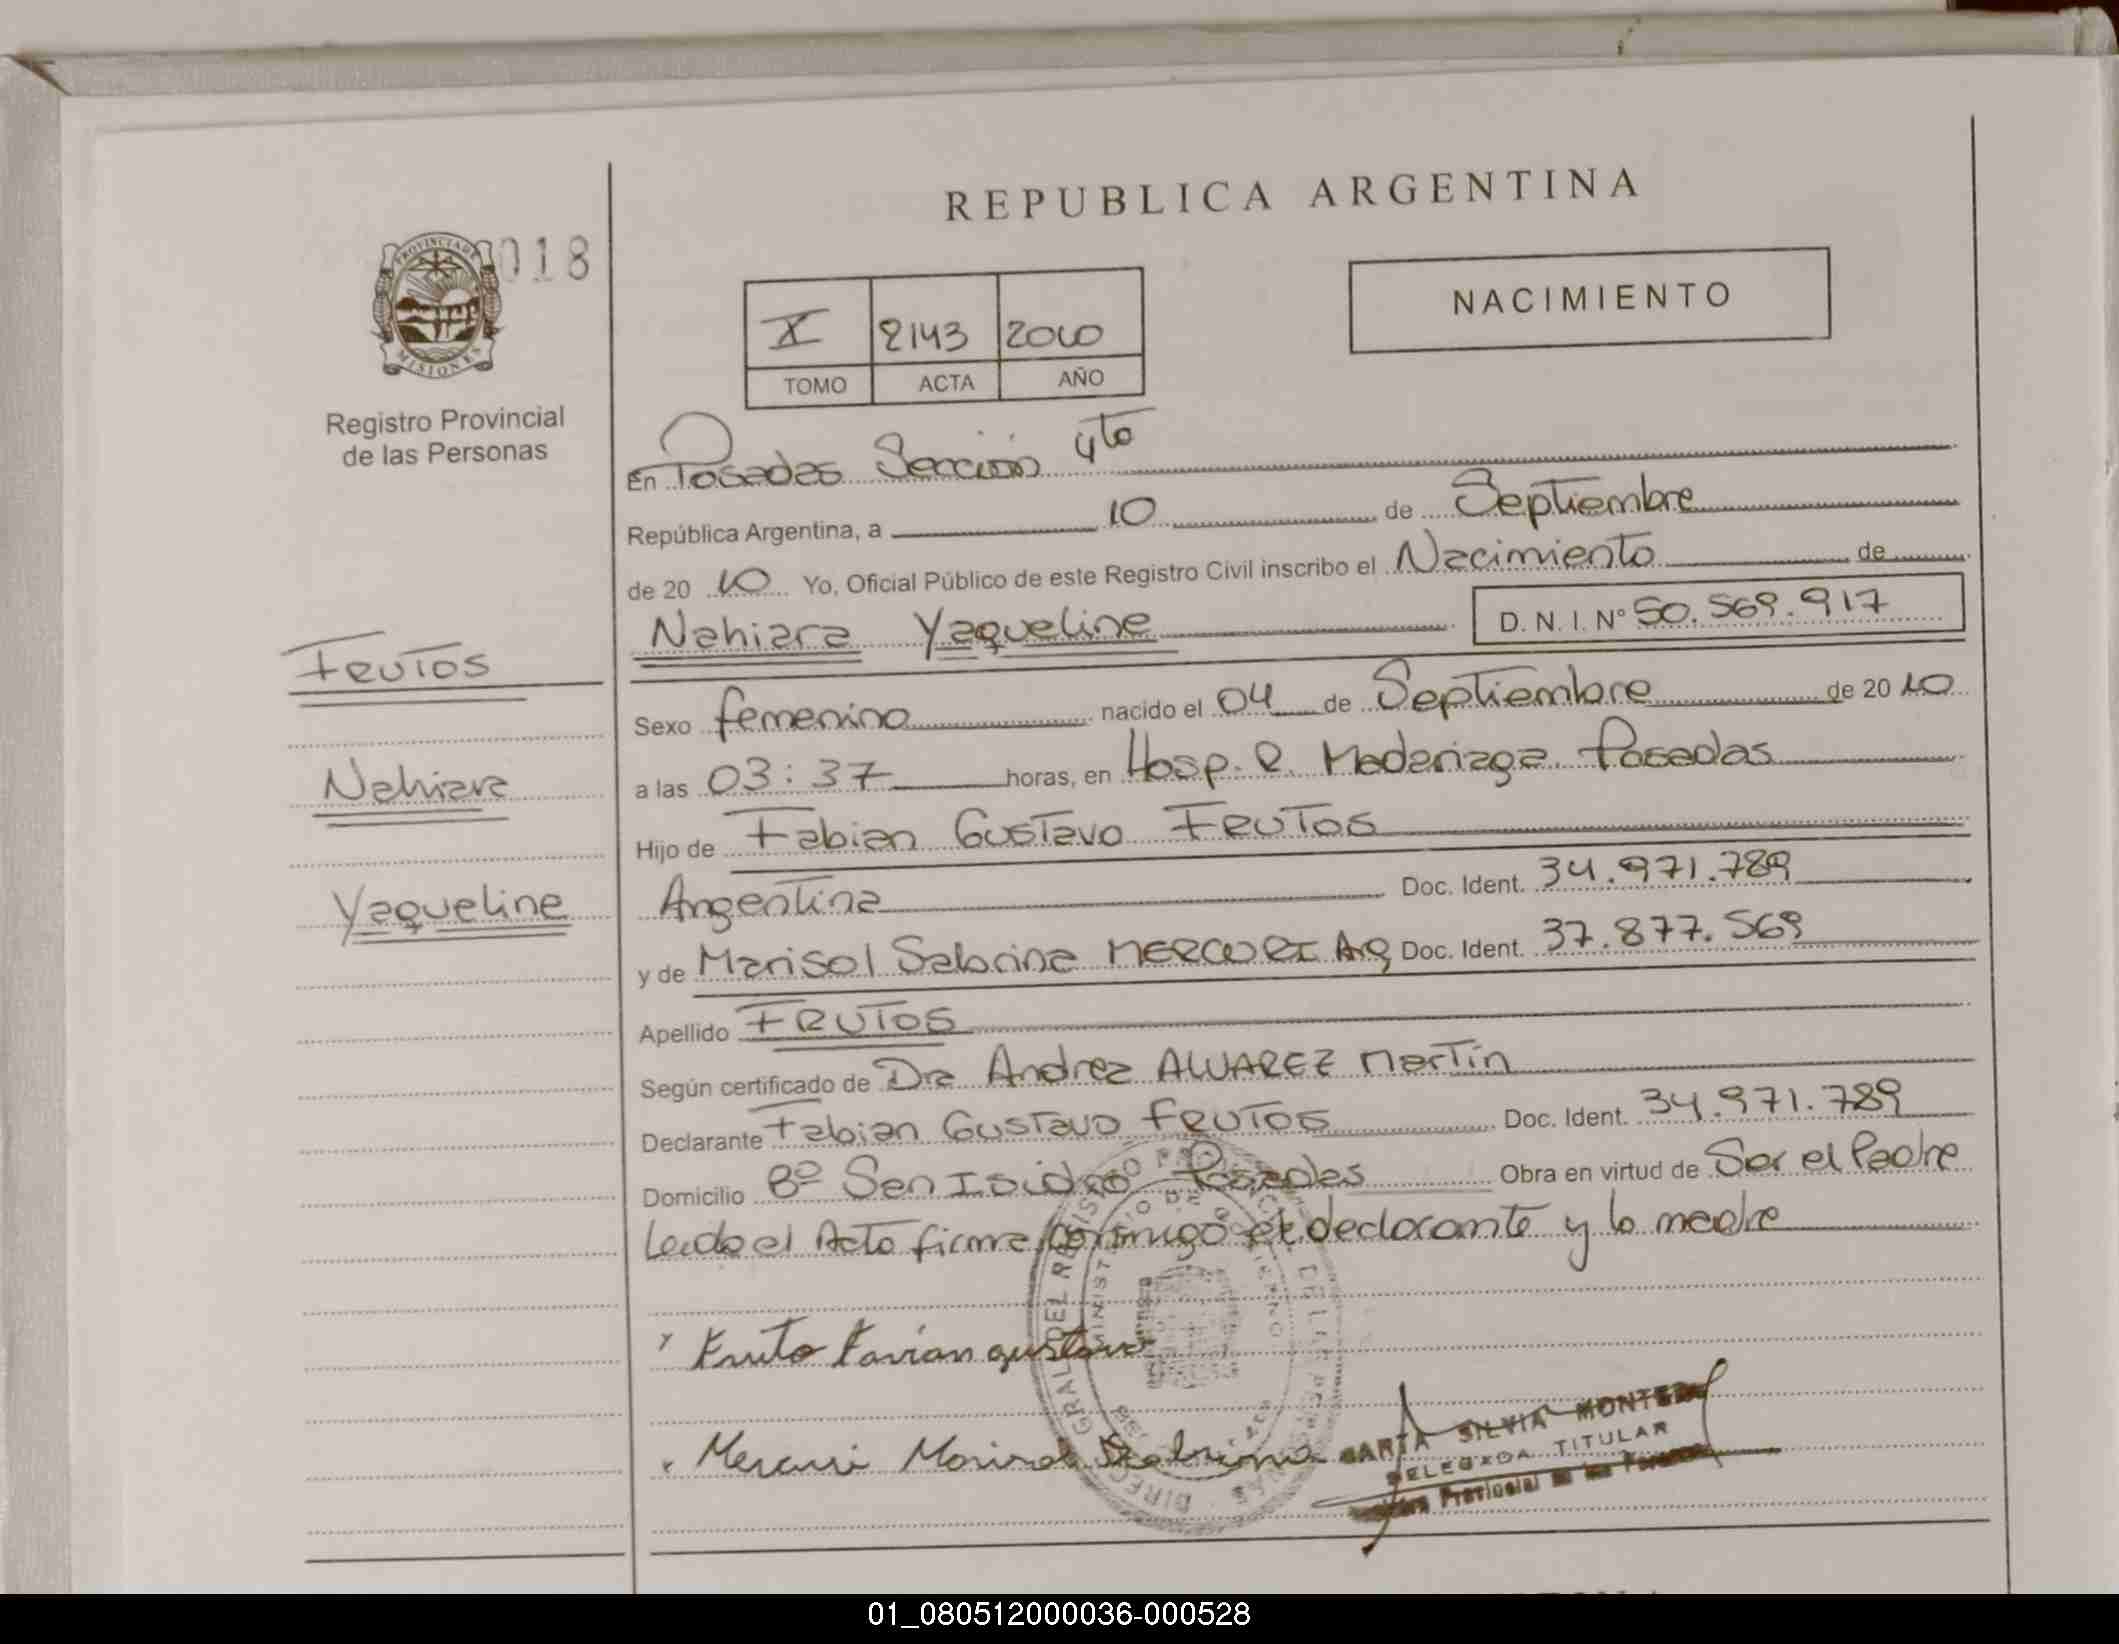 REPUBLICA ARGENTINA
018
PROVINCIA DE
MISIONES
Registro Provincial
de las Personas
X 2143 2010
TOMO ACTA AÑO
NACIMIENTO
En Posadas Sección 4to
República Argentina, a 10 de Septiembre
de 20 10 Yo, Oficial Público de este Registro Civil inscribo el Nacimiento de
Nahiara Yaqueline D. N. I. Nº 50.569.917
FRUTOS
Nahiara
Yaqueline
Sexo femenino nacido el 04 de Septiembre de 20 10
a las 03:37 horas, en Hosp. R. Madariaga Posadas
Hijo de Fabian Gustavo FRUTOS
Argentina Doc. Ident. 34.971.789
y de Marisol Sabrina MERCURI Arg Doc. Ident. 37.877.569
Apellido FRUTOS
Según certificado de Dra Andrea ALVAREZ Martín
Declarante Fabian Gustavo FRUTOS Doc. Ident. 34.971.789
Domicilio Bº San Isidro Posadas Obra en virtud de Ser el Padre
Leida el Acta firma conmigo el declarante y la madre
Fruto Favian gustavo
Mercuri Marisol Sabrina
SILVIA
DELEGADA TITULAR
Provincial de las
01_080512000036-000528